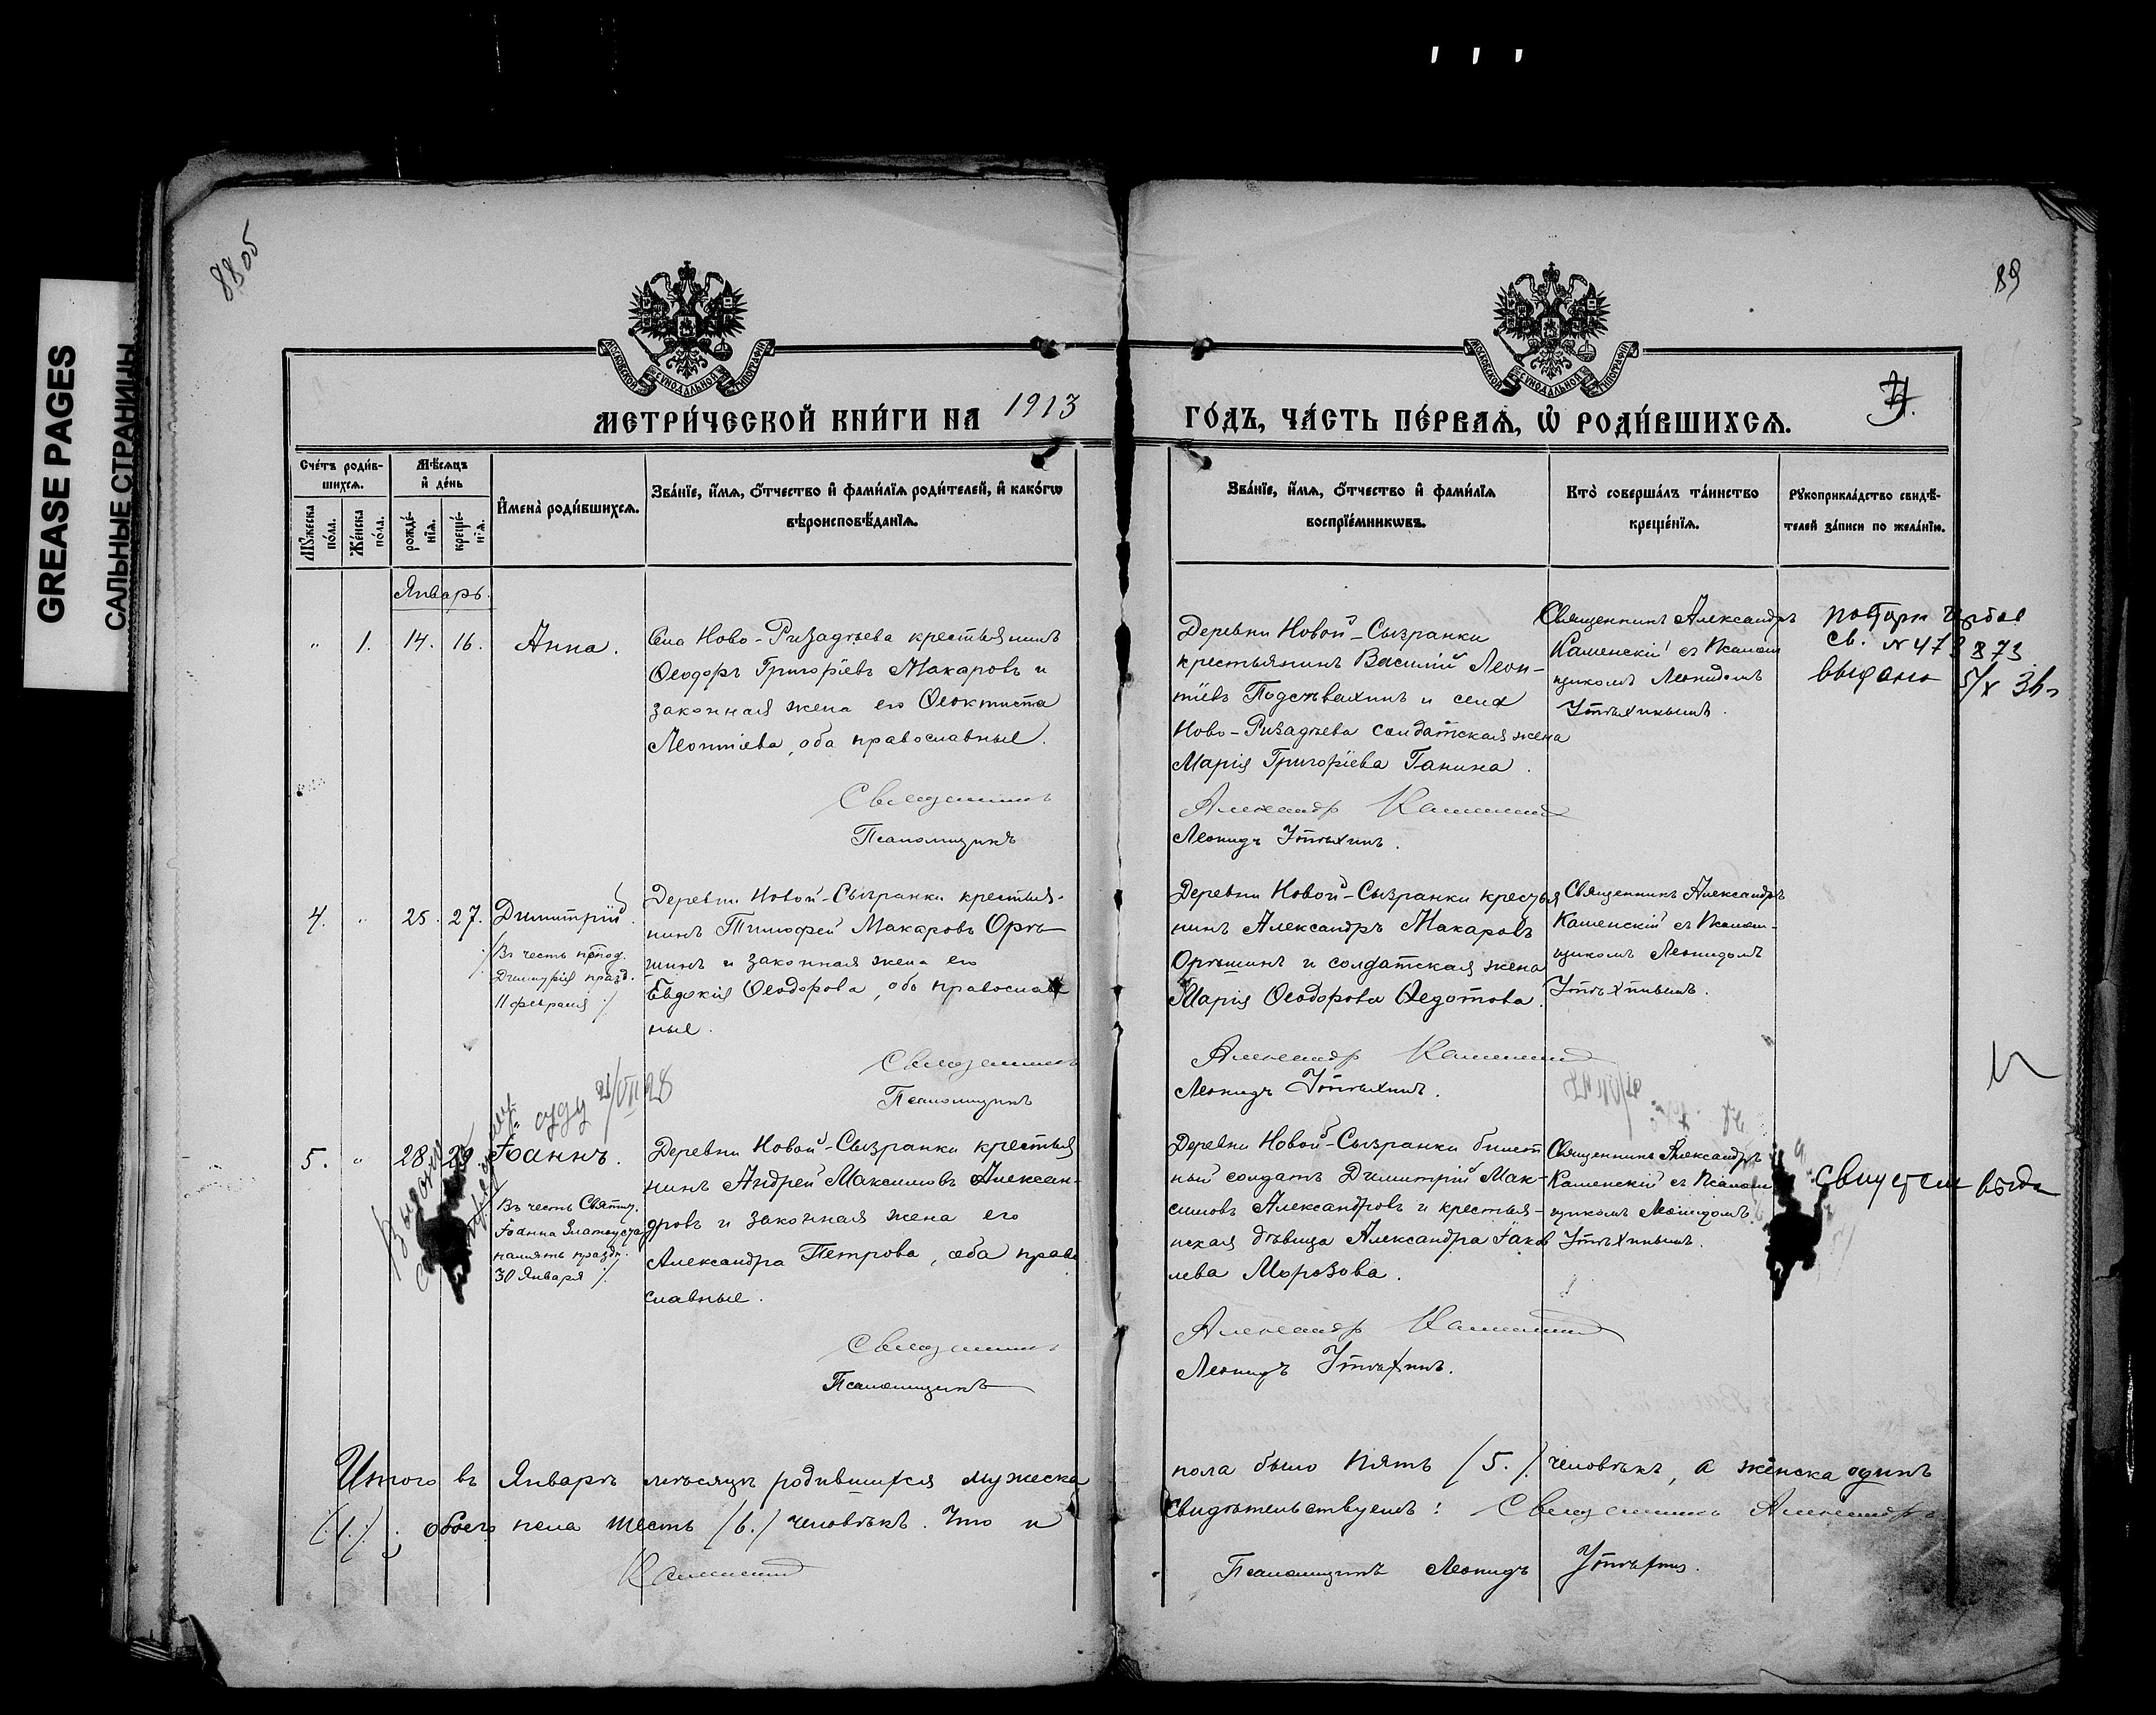 GREASE PAGES
САЛЬНЫЕ СТРАНИЦЫ
88 об
89
МОСКОВСКОЙ СѴНОДАЛЬНОЙ ТИПОГРАФІИ
МОСКОВСКОЙ СѴНОДАЛЬНОЙ ТИПОГРАФІИ
МЕТРИ́ЧЕСКОЙ КНИ́ГИ НА 1913
ГО́ДЪ, ЧА́СТЬ ПЕ́РВАѦ, Ѽ РОДИ́ВШИХСѦ.
Сче́тъ роди́в-
шихсѧ.
Мѣ́сѧцъ
и҆ де́нь
Мꙋ́жеска
по́ла.
Же́нска
по́ла.
рожде́-
нїѧ.
креще́-
нїѧ.
И҆мена̀ роди́вшихсѧ.
Зва́нїе, и҆́мѧ, ѻ҆́тчество и҆ фами́лїѧ роди́телей, и҆ како́гѡ
вѣроисповѣ́данїѧ.
Зва́нїе, и҆́мѧ, ѻ҆́тчество и҆ фами́лїѧ
воспрїе́мникѡвъ.
Кто̀ соверша́лъ та́инство
креще́нїѧ.
Рꙋкоприкла́дство свидѣ́-
телей за́писи по жела́нїю.
Январь.
" 1. 14. 16. Анна.
Села Ново-Ризадѣева крестьянинъ
Ѳеодоръ Григоріевъ Макаровъ и
законная жена его Ѳеоктиста
Леонтіева, оба православные.
Священникъ
Псаломщикъ
Деревни Новой-Сызранки
крестьянинъ Василій Леон-
тіевъ и села
Ново-Ризадѣева солдатская жена
Марія Григоріева Ганина.
Александр Каменскій
Леонидъ Утѣхинъ.
Священникъ Александръ
Каменскій съ Псалом
щикомъ Леонидомъ
Утѣхинымъ.
св. № 473873
выдано 5/X 36 г
4. " 25. 27. Димитрій.
/: Въ честь препод.
Димитрія празд.
11 февраля :/
Деревни Новой-Сызранки крестья-
нинъ Тимофей Макаровъ Орѣ-
шинъ и законная жена его
Евдокія Ѳеодорова, оба православ
ные.
Священникъ
Псаломщикъ
Деревни Новой-Сызранки крестья
нинъ Александръ Макаровъ
Орѣшинъ и солдатская жена
Марія Ѳеодорова Ѳедотова.
Александр Каменскій
Леонидъ Утѣхинъ.
Священникъ Александръ
Каменскій съ Псалом-
щикомъ Леонидомъ
Утѣхинымъ.
суду 21/VII 28
5. " 28. 29 Іоаннъ.
Въ честь Святит.
Іоанна Златоуста
память праздн.
30 Января :/
Деревни Новой-Сызранки крестья
нинъ Андрей Максимовъ Алексан-
дровъ и законная жена его
Александра Петрова, оба право
славные.
Священникъ
Псаломщикъ
Деревни Новой-Сызранки билет
ный солдатъ Димитрій Мак-
симовъ Александровъ и крестья-
нская дѣвица Александра Іаков
лева Морозова.
Александр Каменскій
Леонидъ Утѣхинъ.
Священникъ Александръ
Каменскій съ Псалом
щикомъ Леонидомъ
Утѣхинымъ.
Итого въ Январѣ мѣсяцѣ родившихся мужеска
пола было пять /5./ человѣкъ, а женска одинъ
/:1:/; обоего пола шесть /6./ человѣкъ. Что и
свидѣтельствуемъ: Священникъ Александръ
Каменскій
Псаломщикъ Леонидъ Утѣхинъ.